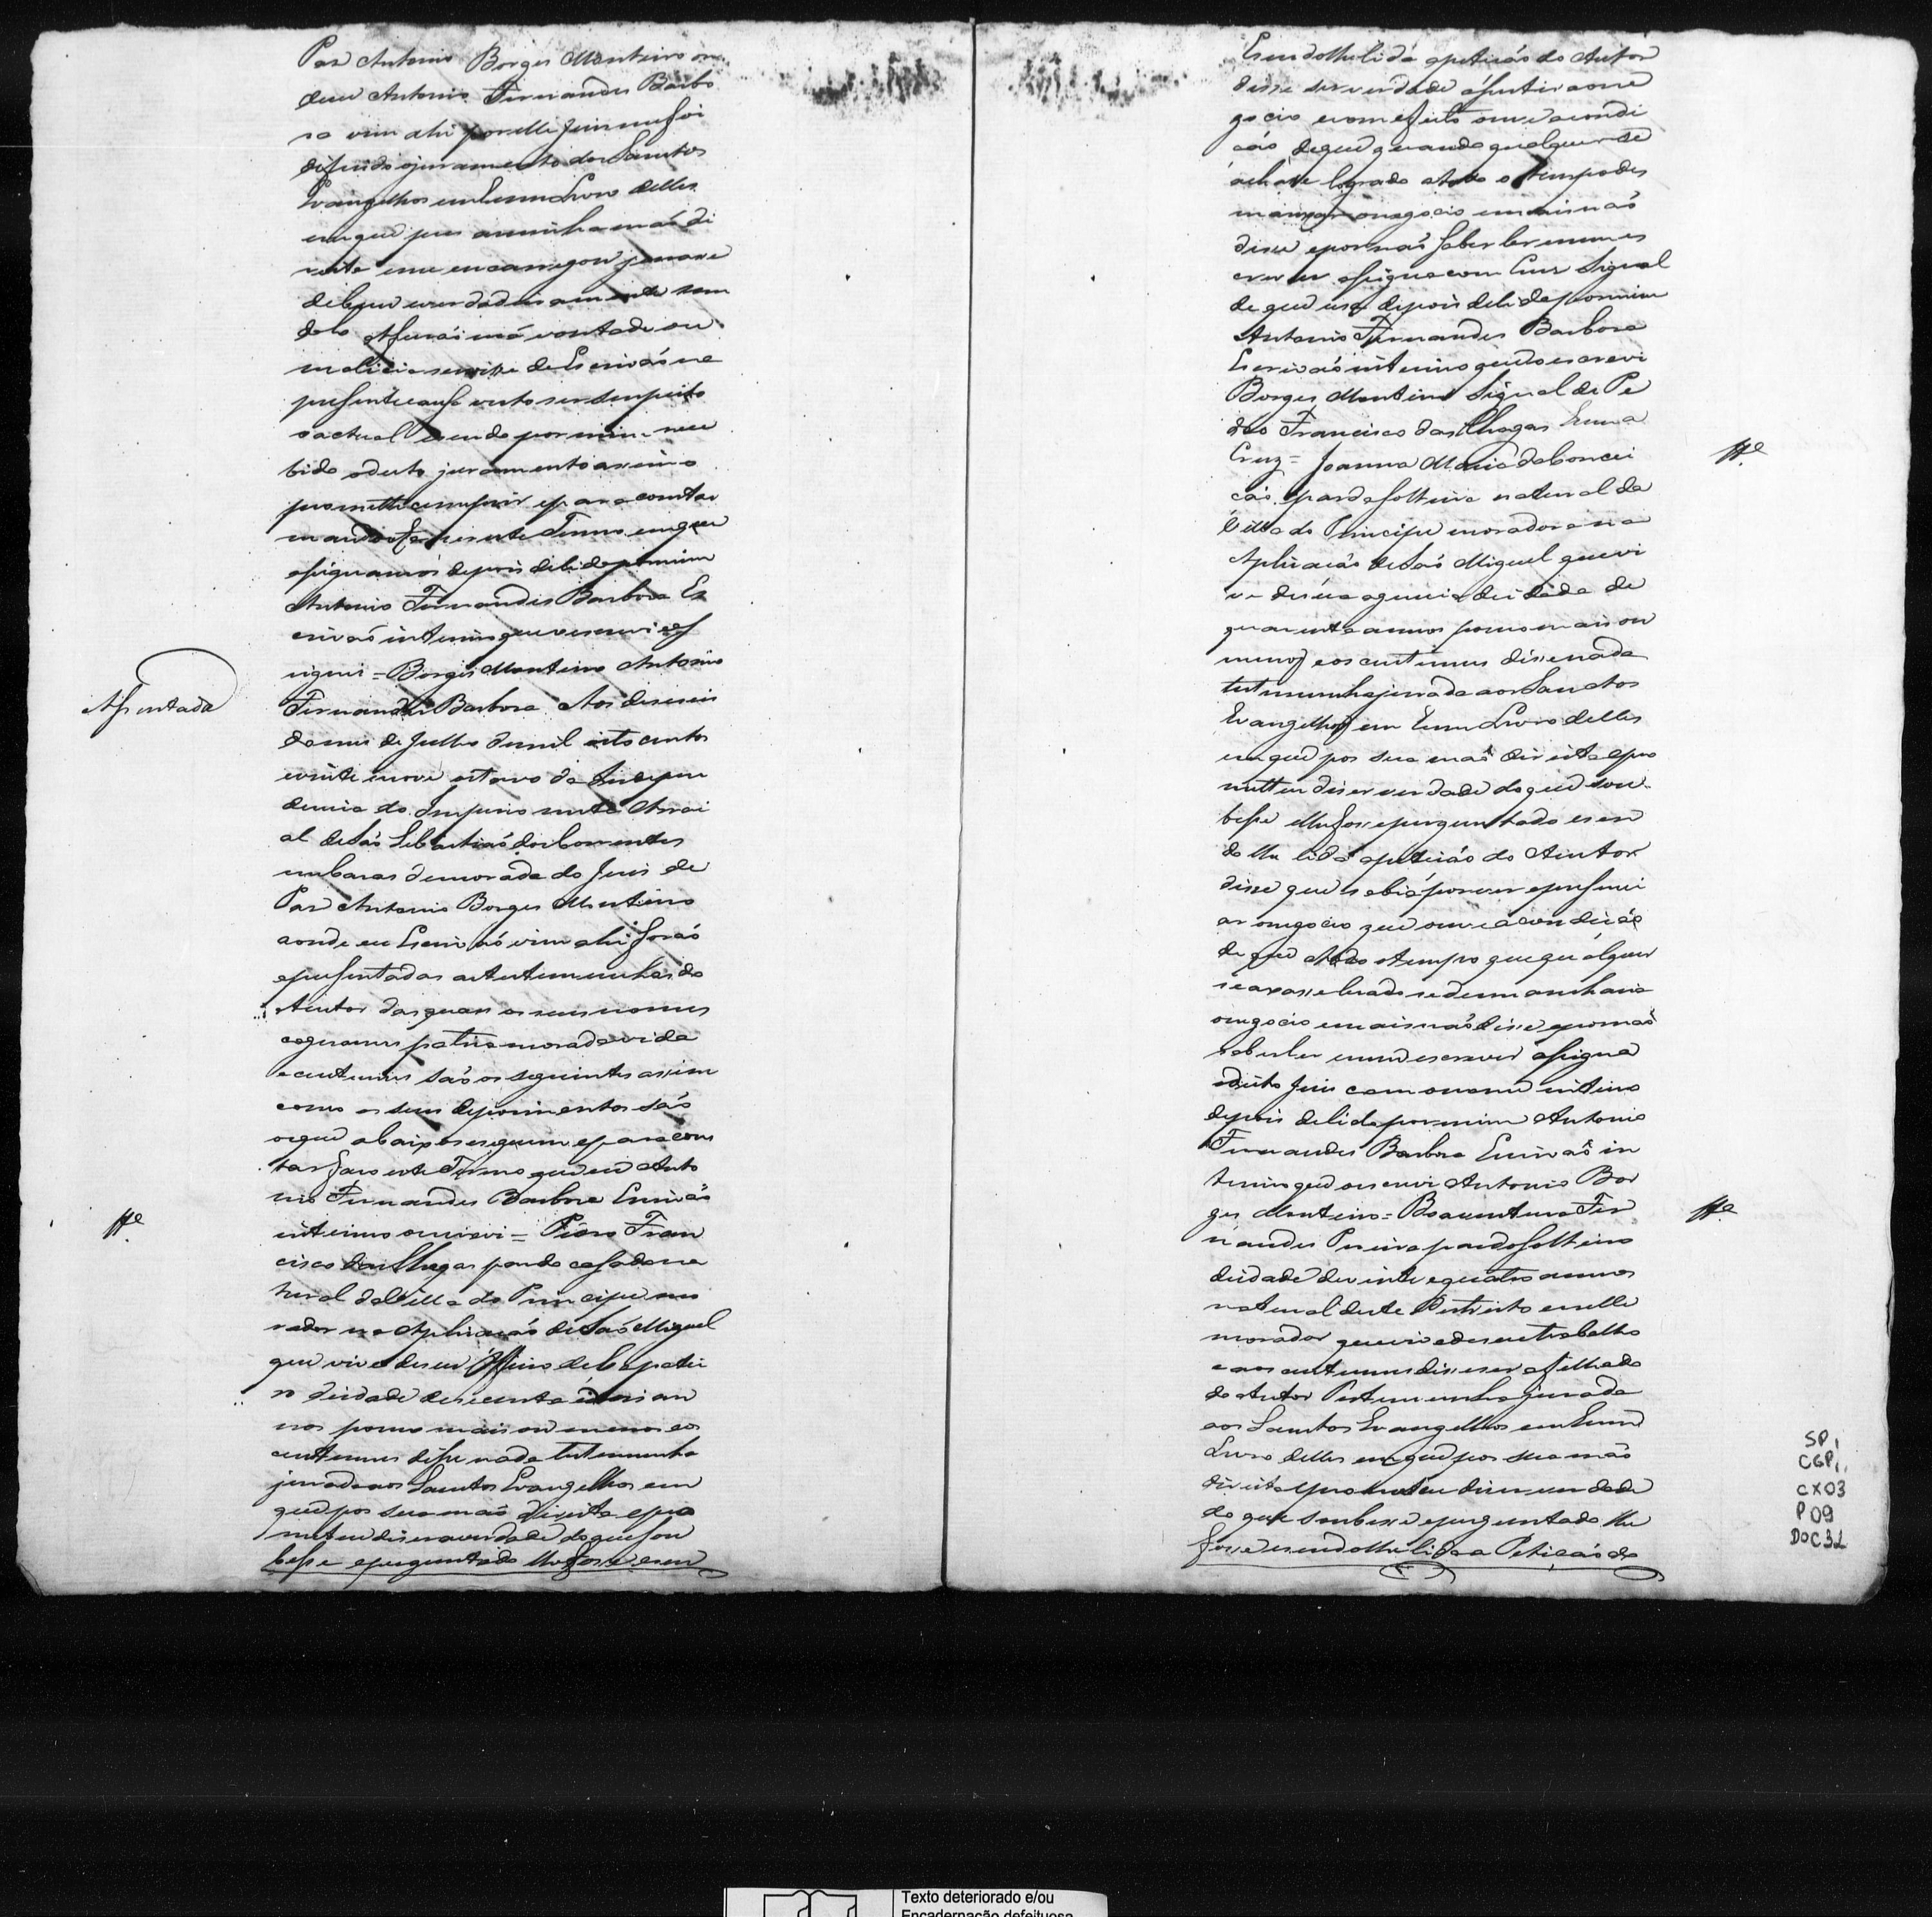 Paz Antonio Borges Monteiro on
deeu Antonio Fernandes Barbo
sa vim ahi por elle Juis me foi
difirido o juramento dos Santos
Evangelhos em hum Livro delles
em que pus a minha maó di
reita e me encarregou jurasse
de bem e verdadeiramente sem
dolo Afeicaó má vontade ou
malicia servisse de Escrivaó na
presente cauza visto ser suspeito
o actual e sendo por mim rece
bido o dicto juramento assim o
prometti cumprir e para constar
mandou faser este Termo em que
asignamos depois de lido por mim
Antonio Fernandes Barbosa Es
crivaó interino que o escrevi e as
signei = Borges Monteiro Antonio
Asentada
Fernandes Barbosa Aos deseseis
do mes de Julho de mil oito centos
e vinte e nove oitavo da Indepen
dencia do Imperio neste Arrai
al de Saó Sebastiaó dos Correntes
em Casas de morada do Juis de
Paz Antonio Borges Monteiro
aonde eu Escrivaó vim ahi foraó
apresentadas as testemunhas do
Autor das quais os seus nomes
cognomes patria morada vida
e custumes saó os seguintes assim
como os seus depoimentos saó
os que abaixo se seguem e para cons
tar faço este Termo que eu Anto
nio Fernandes Barbosa Escrivaó
interino o escrevi = Pedro Fran
cisco das Chagas pardo casado na
tural da Villa do Principe mo
rador na Aplicacaó de Saó Miguel
que vive de seu Officio de Sapatei
ro de idade de secenta e seis an
nos pouco mais ou menos e os
custumes disse nada testemunha
jurada aos Santos Evangelhos em
que pos sua maó direita e pro
meteu diser a verdade do que sou
besse e perguntado lhe fosse e sen
E sendo lhe lida a peticaó do Autor
disse ser verdade asistir ao ne
gocio e com efeito ouve a condi
caó de que quando qualquer se
achase logrado a todo o tempo des
manxar o negocio e mais naó
disse e por naó saber ler nem es
crever asigna com huz signal
de que usa depois de lido por mim
Antonio Fernandes Barbosa
Escrivaó interino que o escrevi
Borges Monteiro Signal de Pe
dro Francisco das Chagas huma
Cruz = Joanna Maria da Concei
caó parda solteira natural da
Villa do Principe moradora na
Aplicacaó de Saó Miguel que vi
ve de sua agencia de idade de
quarenta annos pouco mais ou
menos e os custumes disse nada
testemunha jurada aos Sanctos
Evangelhos em hum Livro delles
em que pos sua maó direita e pro
metteu diser verdade do que sou
besse e lhe fosse perguntado e sen
do lhe lida a peticaó do Autor
disse que sabia por ver e presenci
ar o negocio que ouve a condicaó
de que a todo o tempo que qualquer
se axasse lezado se desmanchava
o negocio e mais naó disse e por naó
saber ler e nem escrever asigna
o dicto Juis com o nome inteiro
depois de lido por mim Antonio
Fernandes Barbosa Escrivaó in
terino que o escrevi Antonio Bor
ges Monteiro = Boaventura Fer
nandes Pereira pardo solteiro
de idade de vinte e quatro annos
natural deste Destricto e nelle
morador que vive de seu trabalho
e aos custumes disse ser afilhado
do Autor Testemunha jurada
aos Santos Evangelhos em hum
Livro delles em que pos sua maó
direita e prometeu diser verdade
do que soubesse e perguntado lhe
fosse e sendo lhe lida a Peticaó do
SP,
CGP,
CX03
P09
DOC32
Texto deteriorado e/ou
Encadernação defeituosa